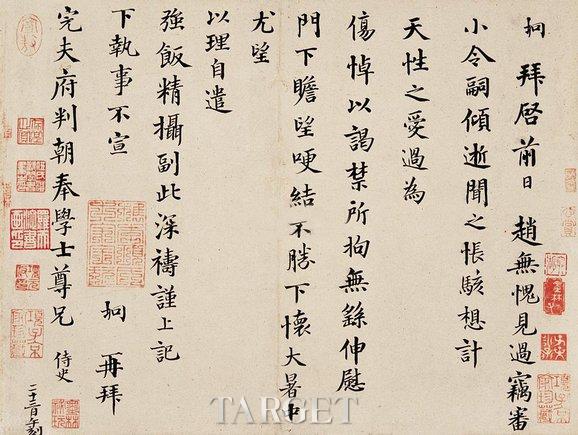 坰 拜啓前日 趙無愧見過竊審
小令嗣傾逝聞之悵駭想計
天性之愛過為
傷悼以謁禁所拘無繇伸慰
門下瞻望哽結不勝下懷大暑中
尤望
以理自遣
強飯精攝副此深禱謹上記
下執事不宣 坰 再拜
完夫府判朝奉學士尊兄 侍史
二十三日午刻
TARGET